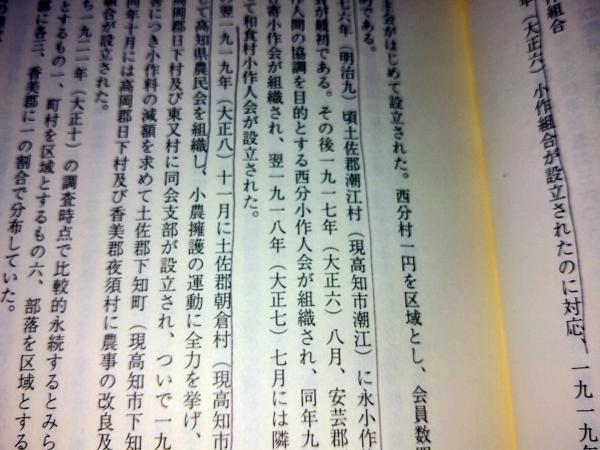 組合
年（大正六）小作組合が設立されたのに対応、一九一九年
主会がはじめて設立された。西分村一円を区域とし、会員数四
的である。
七六年（明治九）頃土佐郡潮江村（現高知市潮江）に永小作
が嚆矢である。その後一九一七年（大正六）八月、安芸郡
人間の協調を目的とする西分小作人会が組織され、同年九
寄小作人会が組織され、翌一九一八年（大正七）七月には隣
て和食村小作人会が設立された。
翌一九一九年（大正八）十一月に土佐郡朝倉村（現高知市
して高知県農民会を組織し、小農擁護の運動に全力を挙げ、
高岡郡日下村及び東又村に同会支部が設立され、ついで一九
害につき小作料の減額を求めて土佐郡下知町（現高知市下知
同年十月には高岡郡日下村及び香美郡夜須村に農事の改良及
組合が設立された。
ち一九二一年（大正十）の調査時点で比較的永続するとみら
とするもの一、町村を区域とするもの六、部落を区域とする
郡に各三、香美郡に一の割合で分布していた。